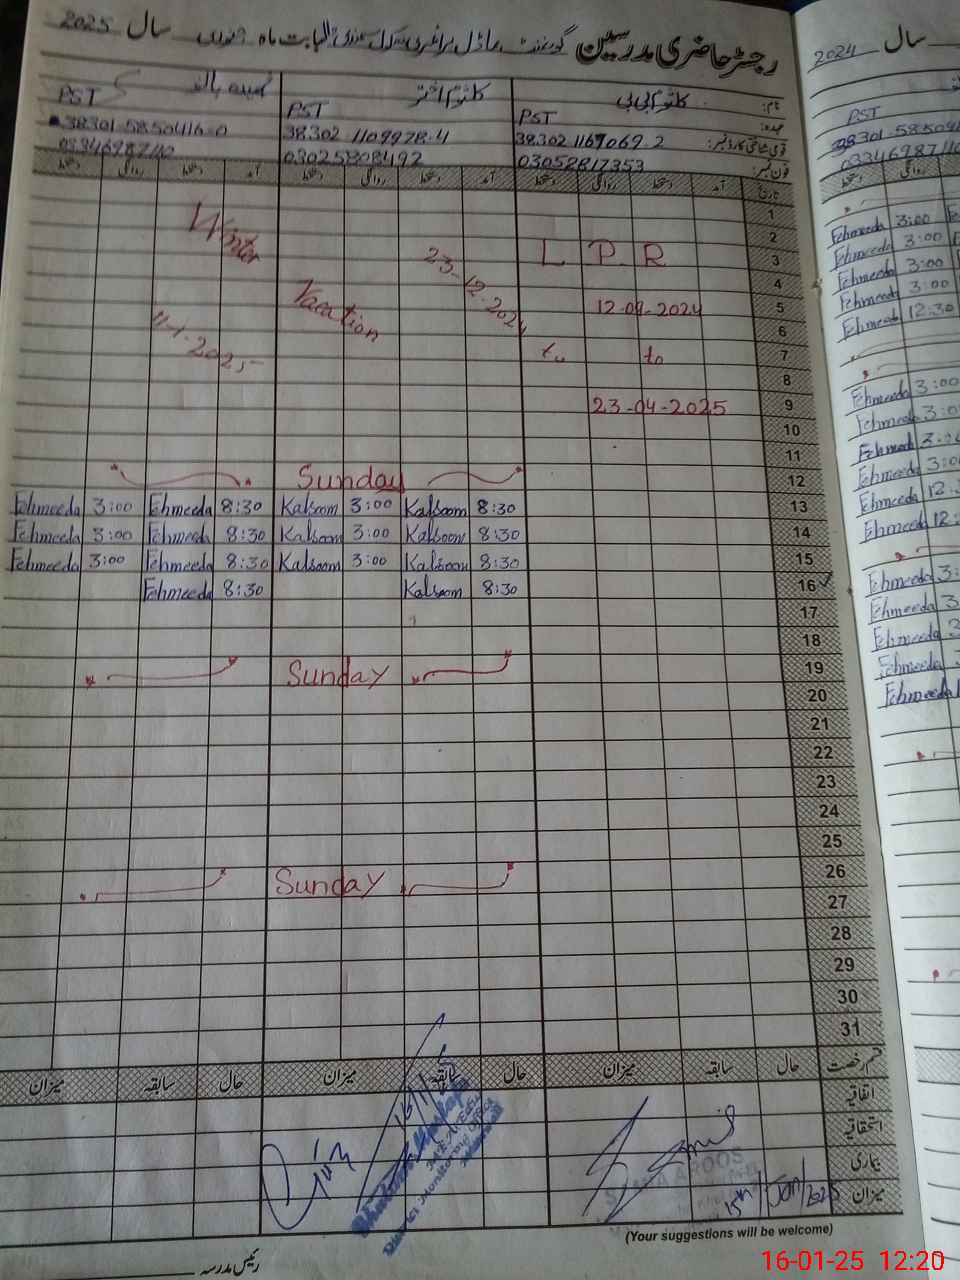 رجسٹر حاضری مدرسین گورنمنٹ ماڈل پرائمری سکول بابت ماہ جنوری سال 2025
نام: کلثوم بی بی کلثوم اختر فہمیدہ
عہدہ: PST PST PST
قومی شناختی کارڈ نمبر: 38302 1169069-2 38302-1109978-4 38301-5850416-0
فون نمبر: 03058817353 03025808492 03346987110
تاریخ آمد دستخط روانگی دستخط آمد دستخط روانگی دستخط آمد دستخط روانگی دستخط
1
2
3 L P R Winter
4 23-12-2024
5 12-09-2024 Vacation
6
7 to to 11-1-2025
8
9 23-04-2025
10
11
12 Sunday
13 8:30 Kalsoom 3:00 Kalsoom 8:30 Fehmeeda 3:00 Fehmeeda
14 8:30 Kalsoom 3:00 Kalsoom 8:30 Fehmeeda 3:00 Fehmeeda
15 8:30 Kalsoom 3:00 Kalsoom 8:30 Fehmeeda 3:00 Fehmeeda
16 8:30 Kalsoom 8:30 Fehmeeda
17
18
19 Sunday
20
21
22
23
24
25
26 Sunday
27
28
29
30
31
قسم رخصت حال سابقہ میزان حال سابقہ میزان حال سابقہ میزان
اتفاقیہ
استحقاقیہ
بیماری
میزان
16/1/25
District Monitoring Officer
15th/Jan/2025
(Your suggestions will be welcome)
رئیس مدرسہ
سال 2024
PST
38301-58504
03346987110
روانگی دستخط
Fehmeeda 3:00
Fehmeeda 3:00
Fehmeeda 3:00
Fehmeeda 3:00
Fehmeeda 12:30
Fehmeeda 3:00
Fehmeeda 3:0
Fehmeeda 3:0
Fehmeeda 3:00
Fehmeeda 12:3
Fehmeeda 12:
Fehmeeda 3:
Fehmeeda 3
Fehmeeda 3
Fehmeeda
Fehmeeda
16-01-25 12:20